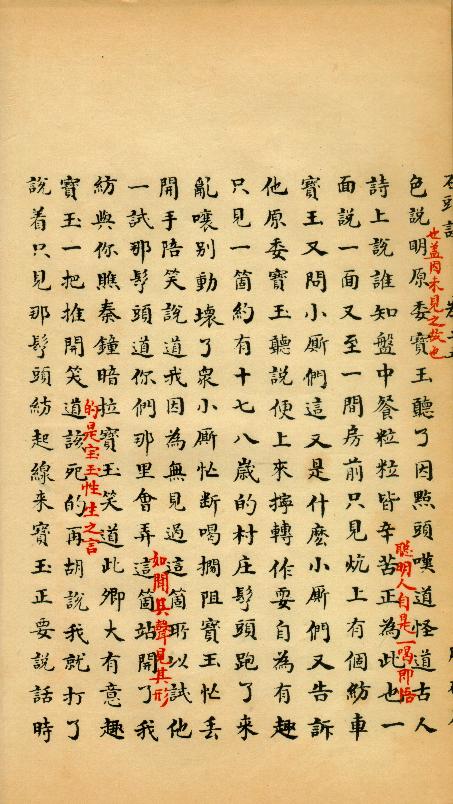 石頭記
色說明原委寶玉聽了因點頭嘆道怪道古人
也蓋因未見之故也
詩上說誰知盤中餐粒粒皆辛苦正為此也一
聰明人自是一喝即悟
面說一面又至一間房前只見炕上有個紡車
寶玉又問小厮們這又是什麽小厮們又告訴
他原委寶玉聽說便上來擰轉作耍自為有趣
只見一箇約有十七八歲的村庄髩頭跑了來
亂嚷別動壞了衆小厮忙断喝攔阻寶玉忙丟
開手陪笑說道我因為無見過這箇所以試他
如聞其聲見其形
一試那髩頭道你們那里會弄這箇站開了我
紡與你瞧秦鐘暗拉寶玉笑道此卿大有意趣
的是宝玉性生之言
寶玉一把推開笑道該死的再胡說我就打了
說着只見那髩頭紡起線来寶玉正要說話時